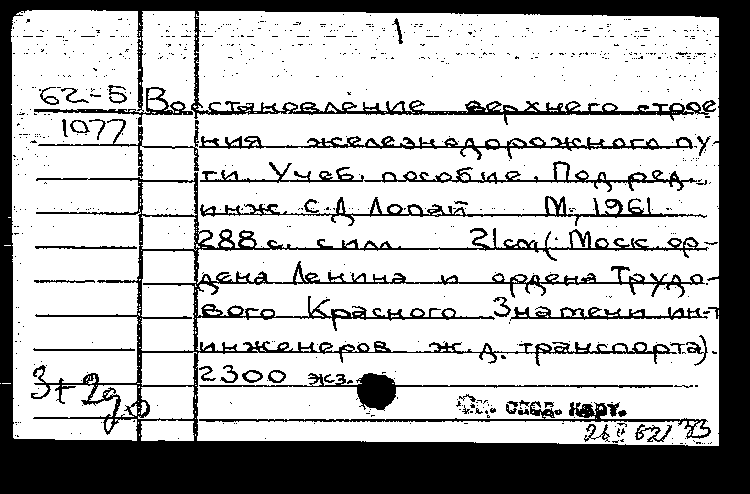 1
62-5 Восстановление верхнего строе
1077 ния железнодорожного пу-
ти. Учеб. пособие. Под ред.
инж. С.Д Лопай М, 1961
288 с. с илл. 21 см (Моск ор-
дена Ленина и ордена Трудо-
вого Красного Знамени ин-т
инженеров ж.д. транспорта).
2300 экз.
3+2
См. след. карт.
26 II 62